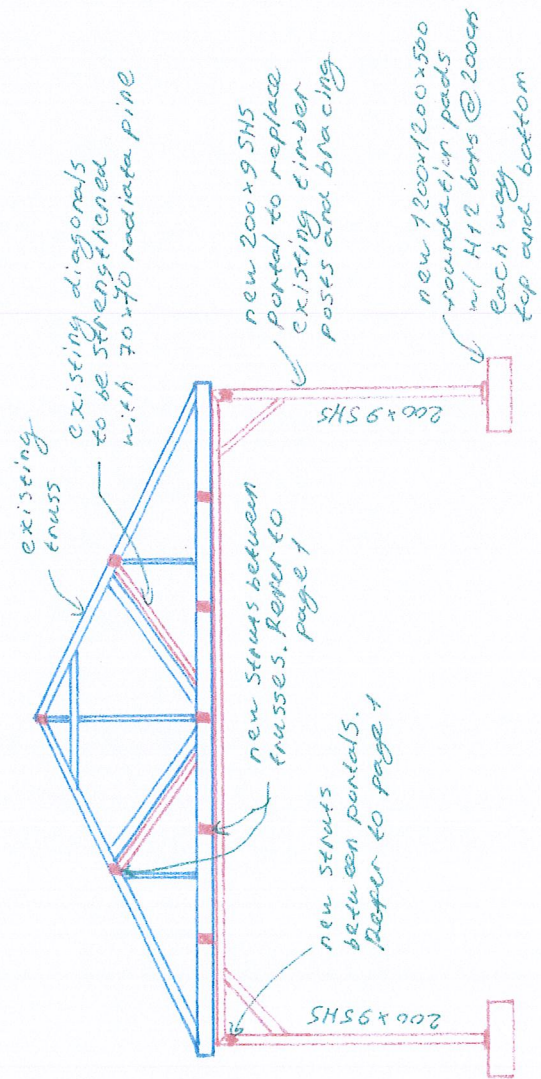 existing
truss
existing diagonals
to be strengthened
with 70x70 radiata pine
new 200x9 SHS
portal to replace
existing timber
posts and bracing
new 1200x1200x500
foundation pads
w/ H12 bars @ 200crs
each way
top and bottom
new struts between
trusses. Refer to
page 1
new struts
between portals.
Refer to page 1
200x9SHS
200x9SHS